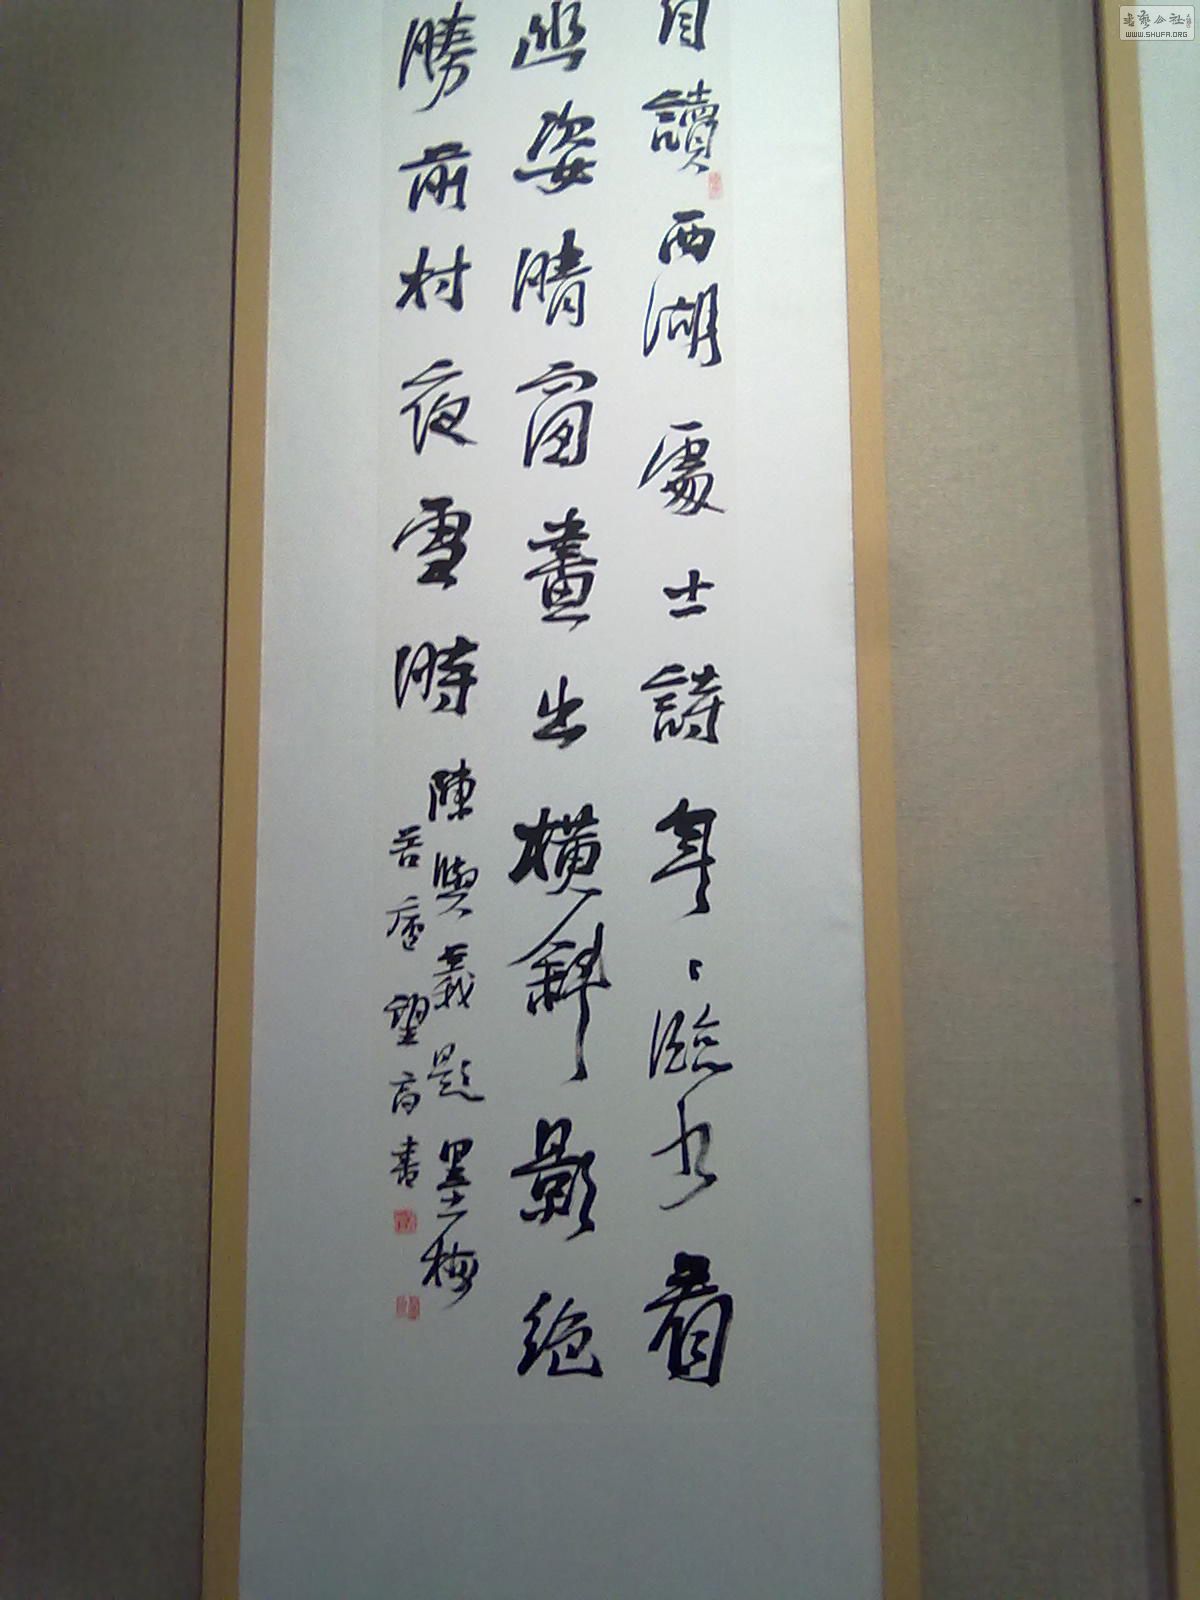 自讀西湖處士詩年々臨水看
幽姿晴窗畫出橫斜影絕
勝前村夜雪時
陳與義題墨梅
苦廬望高書
书艺公社
WWW.SHUFA.ORG